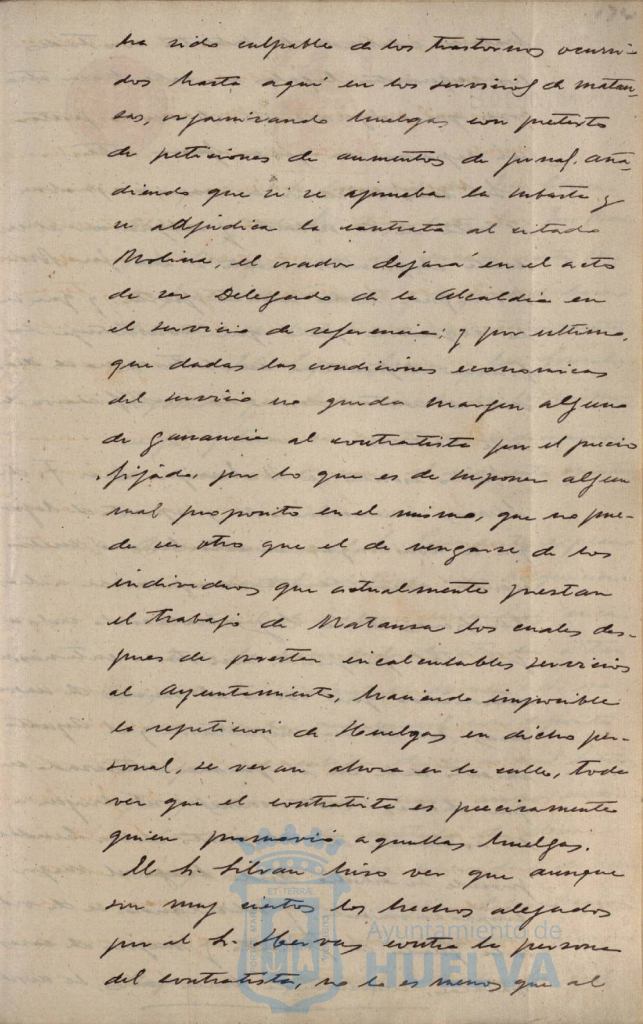 ha sido culpable de los trastornos ocurri-
dos hasta aquí en los servicios de matan-
zas, organizando huelgas con pretexto
de peticiones de aumentos de jornal, aña-
diendo que si se aprueba la subasta y
se adjudica la contrata al citado
Molina, el orador dejará en el acto
de ser Delegado de la Alcaldia en
el servicio de referencia; y por ultimo,
que dadas las condiciones economicas
del servicio no queda margen alguno
de ganancia al contratista por el precio
fijado, por lo que es de suponer algun
mal proposito en el mismo, que no pue-
de ser otro que el de vengarse de los
individuos que actualmente prestan
el trabajo de Matanza los cuales des-
pues de prestar incalculables servicios
al Ayuntamiento, haciendo imposible
la repeticion de Huelgas en dicho per-
sonal, se veran ahora en la calle, toda
vez que el contratista es precisamente
quien promovió aquellas huelgas.
El Sr. Silvan hizo ver que aunque
son muy ciertos los hechos alegados
por el Sr. Hervas contra la persona
del contratista, no lo es menos que al
Ayuntamiento de
HUELVA